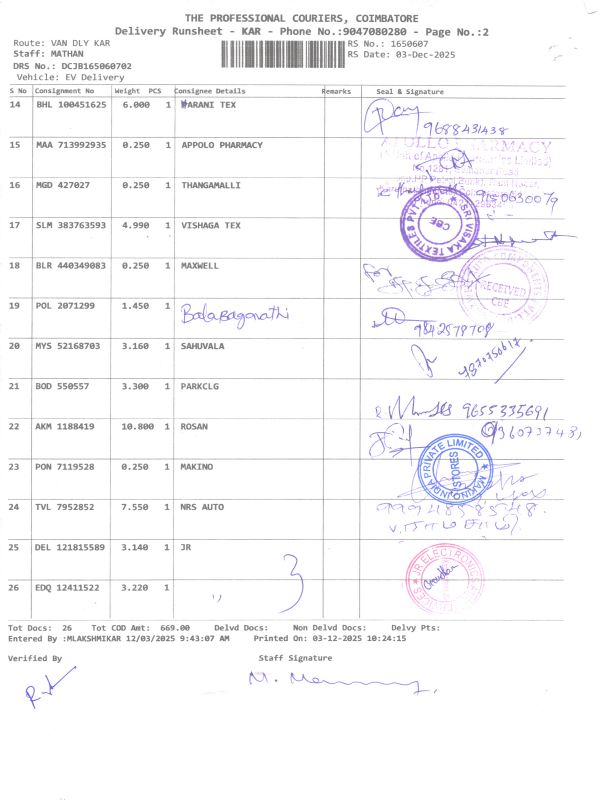 THE PROFESSIONAL COURIERS, COIMBATORE
Delivery Runsheet - KAR - Phone No.:9047080280 - Page No.:2
Route: VAN DLY KAR RS No.: 1650607
Staff: MATHAN RS Date: 03-Dec-2025
DRS No.: DCJB165060702
Vehicle: EV Delivery
S No Consignment No Weight PCS Consignee Details Remarks Seal & Signature
14 BHL 100451625 6.000 1 VARANI TEX
9688431438
15 MAA 713992935 0.250 1 APPOLO PHARMACY APOLLO PHARMACY
16 MGD 427027 0.250 1 THANGAMALLI 9150630079
17 SLM 383763593 4.990 1 VISHAGA TEX SRI VISAKA TEXTILES PVT LTD CBE
18 BLR 440349083 0.250 1 MAXWELL RECEIVED CBE
19 POL 2071299 1.450 1 Balabaganathi
9842579708
20 MYS 52168703 3.160 1 SAHUVALA 7870750617
21 BOD 550557 3.300 1 PARKCLG 9655335691
22 AKM 1188419 10.800 1 ROSAN
23 PON 7119528 0.250 1 MAKINO MAKINO INDIA PRIVATE LIMITED STORES
24 TVL 7952852 7.550 1 NRS AUTO
25 DEL 121815589 3.140 1 JR JR ELECTRONICS
26 EDQ 12411522 3.220 1 ,,
Tot Docs: 26 Tot COD Amt: 669.00 Delvd Docs: Non Delvd Docs: Delvy Pts:
Entered By :MLAKSHMIKAR 12/03/2025 9:43:07 AM Printed On: 03-12-2025 10:24:15
Verified By Staff Signature